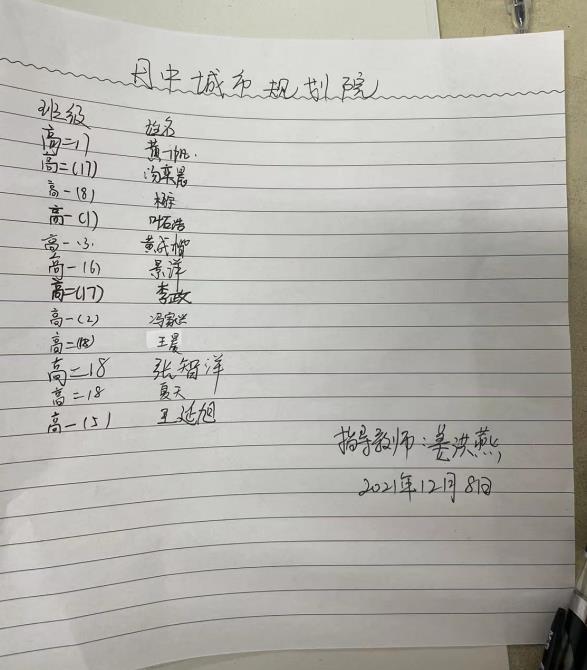 月中城市规划院
班级 姓名
高二17 黄一帆.
高二(17) 汤栾晨
高一(8)
高一(1) 叶石浩
高一.3. 黄成楷
高一16) 景洋
高二(17) 李政
高一(2) 冯家兴
高二(18) 王昊
高二18 张智洋
高二18 夏天
高一(5) 王延旭
指导教师:姜洪燕
2021年12月8日